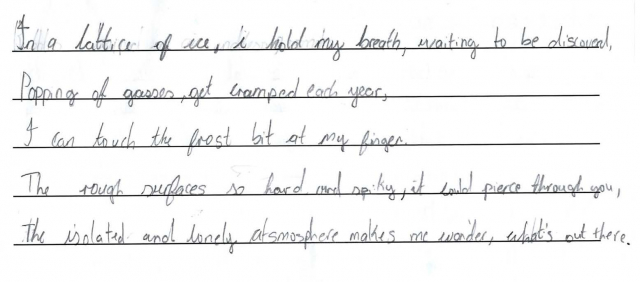 In a lattice of ice, i hold my breath, waiting to be discoverd,
Popping of gasses, get cramped each year,
I can touch the frost bit at my finger.
The rough surfaces so hard and spiky, it could pierce through you,
The isolated and lonely atsmosphere makes me wonder, what's out there.